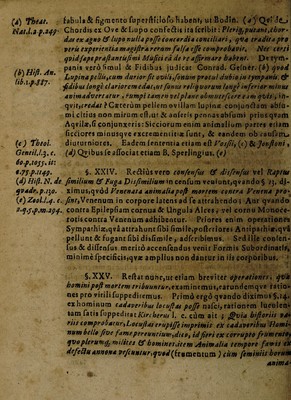 (a) Theat. Nat. l. 2. p. 249.
(b) Hist. An. lib. 1. p. 387.
(c) Theol. Gentil. l. 3. c. 60. p. 1055. it: c. 75. p. 1149.
(d) Hist. N. de quadr. p. 130.
(e) Zool. l. 4. c. 2. q. 5. p. m. 294.
fabula & figmento superstitioso habent, ut Bodin. (a) Qui de
Chordis ex Ove & Lupo confectis ita scribit: Pleriq; putant, chor-
das ex agno & lupo nulla posse concordia conciliari, quæ tradita pro
veris experientia magistra rerum falsa esse comprobavit. Nec certi
quid sæpe præstantissimi Musici ed dere affirmare habent. De tym-
panis verò simul & Fidibus judicat Conrad. Gesner. (b) quod
Lupina pellis, cum durior sit ovili, sonum protul dubio in tympanis &
fidibus longè clariorem edat, at sonus reliquorum longè inferior minus
animadvertatur, rumpi tamen vel planè obmutescere ea quis, in-
quit, credat? Cæterùm pellem ovillam lupinæ conjunctam absu-
mi citius non mirum est ut & anseris pennas absumi prius quam
Aquilæ, si conjunxeris: Sicciorum enim animalium partes etiam
sicciores minusque excrementitiæ sunt, & eandem ob causam
diuturniores. Eadem sententia etiam est Vossii, (c) & Jonstoni,
(d) Quibus se associat etiam S. Sperlingius. (e)
§. XXIV. Rectiùs verò consensus & dissensus vel Raptus
similium & Fuga Dissimilium in censum veniunt, quandò §. 13. di-
ximus, quòd Venenata animalia post mortem contra Venena pro-
sint, Venenum in corpore latens ad se attrahendo: Aut quando
contra Epilepsiam cornua & Ungula Alces; vel cornu Monoce-
rotis contra Venenum adhibentur. Priores enim operationes
Sympathiæ, quâ attrahunt sibi simile, posteriores Antipathiæ, quâ
pellunt & fugant sibi dissimile, adscribimus. Sed ille consen-
sus & dissensus meritò accensendus venit Formis subordinatis,
minime specificis, quæ amplius non dantur in ile corporibus.
§. XXV. Restat nunc, ut etiam breviter operationes, quæ
homini post mortem tribuuntur, examinemus, earundemque ratio-
nes pro virili suppeditemus. Primò ergò quando diximus §. 14.
ex hominum cadaveribus locustas posse nasci, rationem luculen-
tam satis suppeditat Kircherus l. c. cùm ait; Quia historiis na-
riis comprobatur, Locustas erupisse imprimis ex cadaveribus Homi-
num bello sive fame peremtorum, dico, id fieri ex corrupto frumento
quo plerumq; milites & homines, item Animalia tempore famis ex
defectu annonæ vescuntur, quod (frumentum) cum seminis horum
anima-